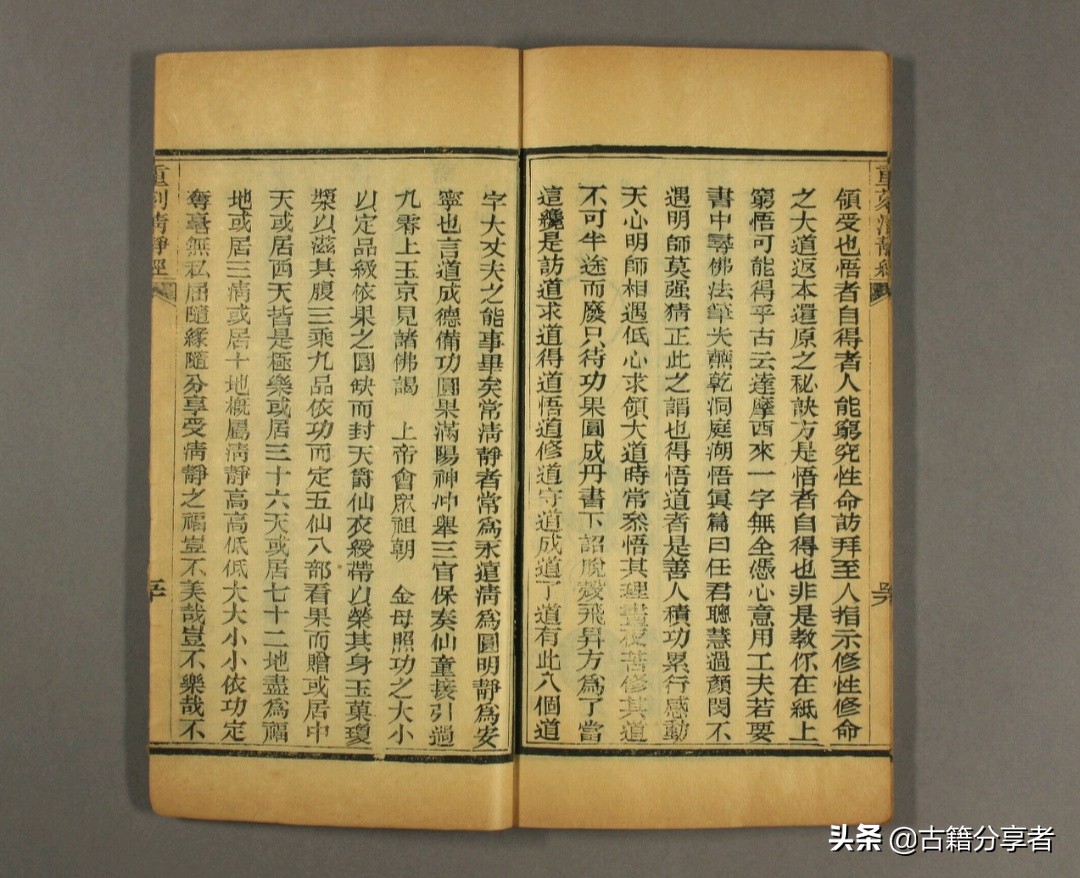 領受也悟者自得者人能窮究性命訪拜至人指示修性修命
之大道返本還原之秘訣方是悟者自得也非是教你在紙上
窮悟可能得乎古云達摩西來一字無全憑心意用工夫若要
書中尋佛法筆尖蘸乾洞庭湖悟真篇曰任君聰慧過顏閔不
遇明師莫强猜正此之謂也得悟道者是善人積功累行感動
天心明師相遇低心求領大道時常叅悟其理晝夜苦修其道
不可半途而廢只待功果圓成丹書下詔脫殼飛昇方為了當
這纔是訪道求道得道悟道修道守道成道了道有此八個道
字大丈夫之能事畢矣常清靜者常為永遠清為圓明靜為安
寧也言道成德備功圓果滿陽神冲舉三官保奏仙童接引遊
九霄上玉京見諸佛謁　上帝會眾祖朝　金母照功之大小
以定品級依果之圓缺而封天爵仙衣綬帶以榮其身玉菓瓊
漿以滋其腹三乘九品依功而定五仙八部看果而贈或居中
天或居西天皆是極樂或居三十六天或居七十二地盡為福
地或居三清或居十地概屬清靜高高低低大大小小依功定
奪毫無私屈隨緣隨分享受清靜之福豈不美哉豈不樂哉不
重刊清靜經
头条 @古籍分享者